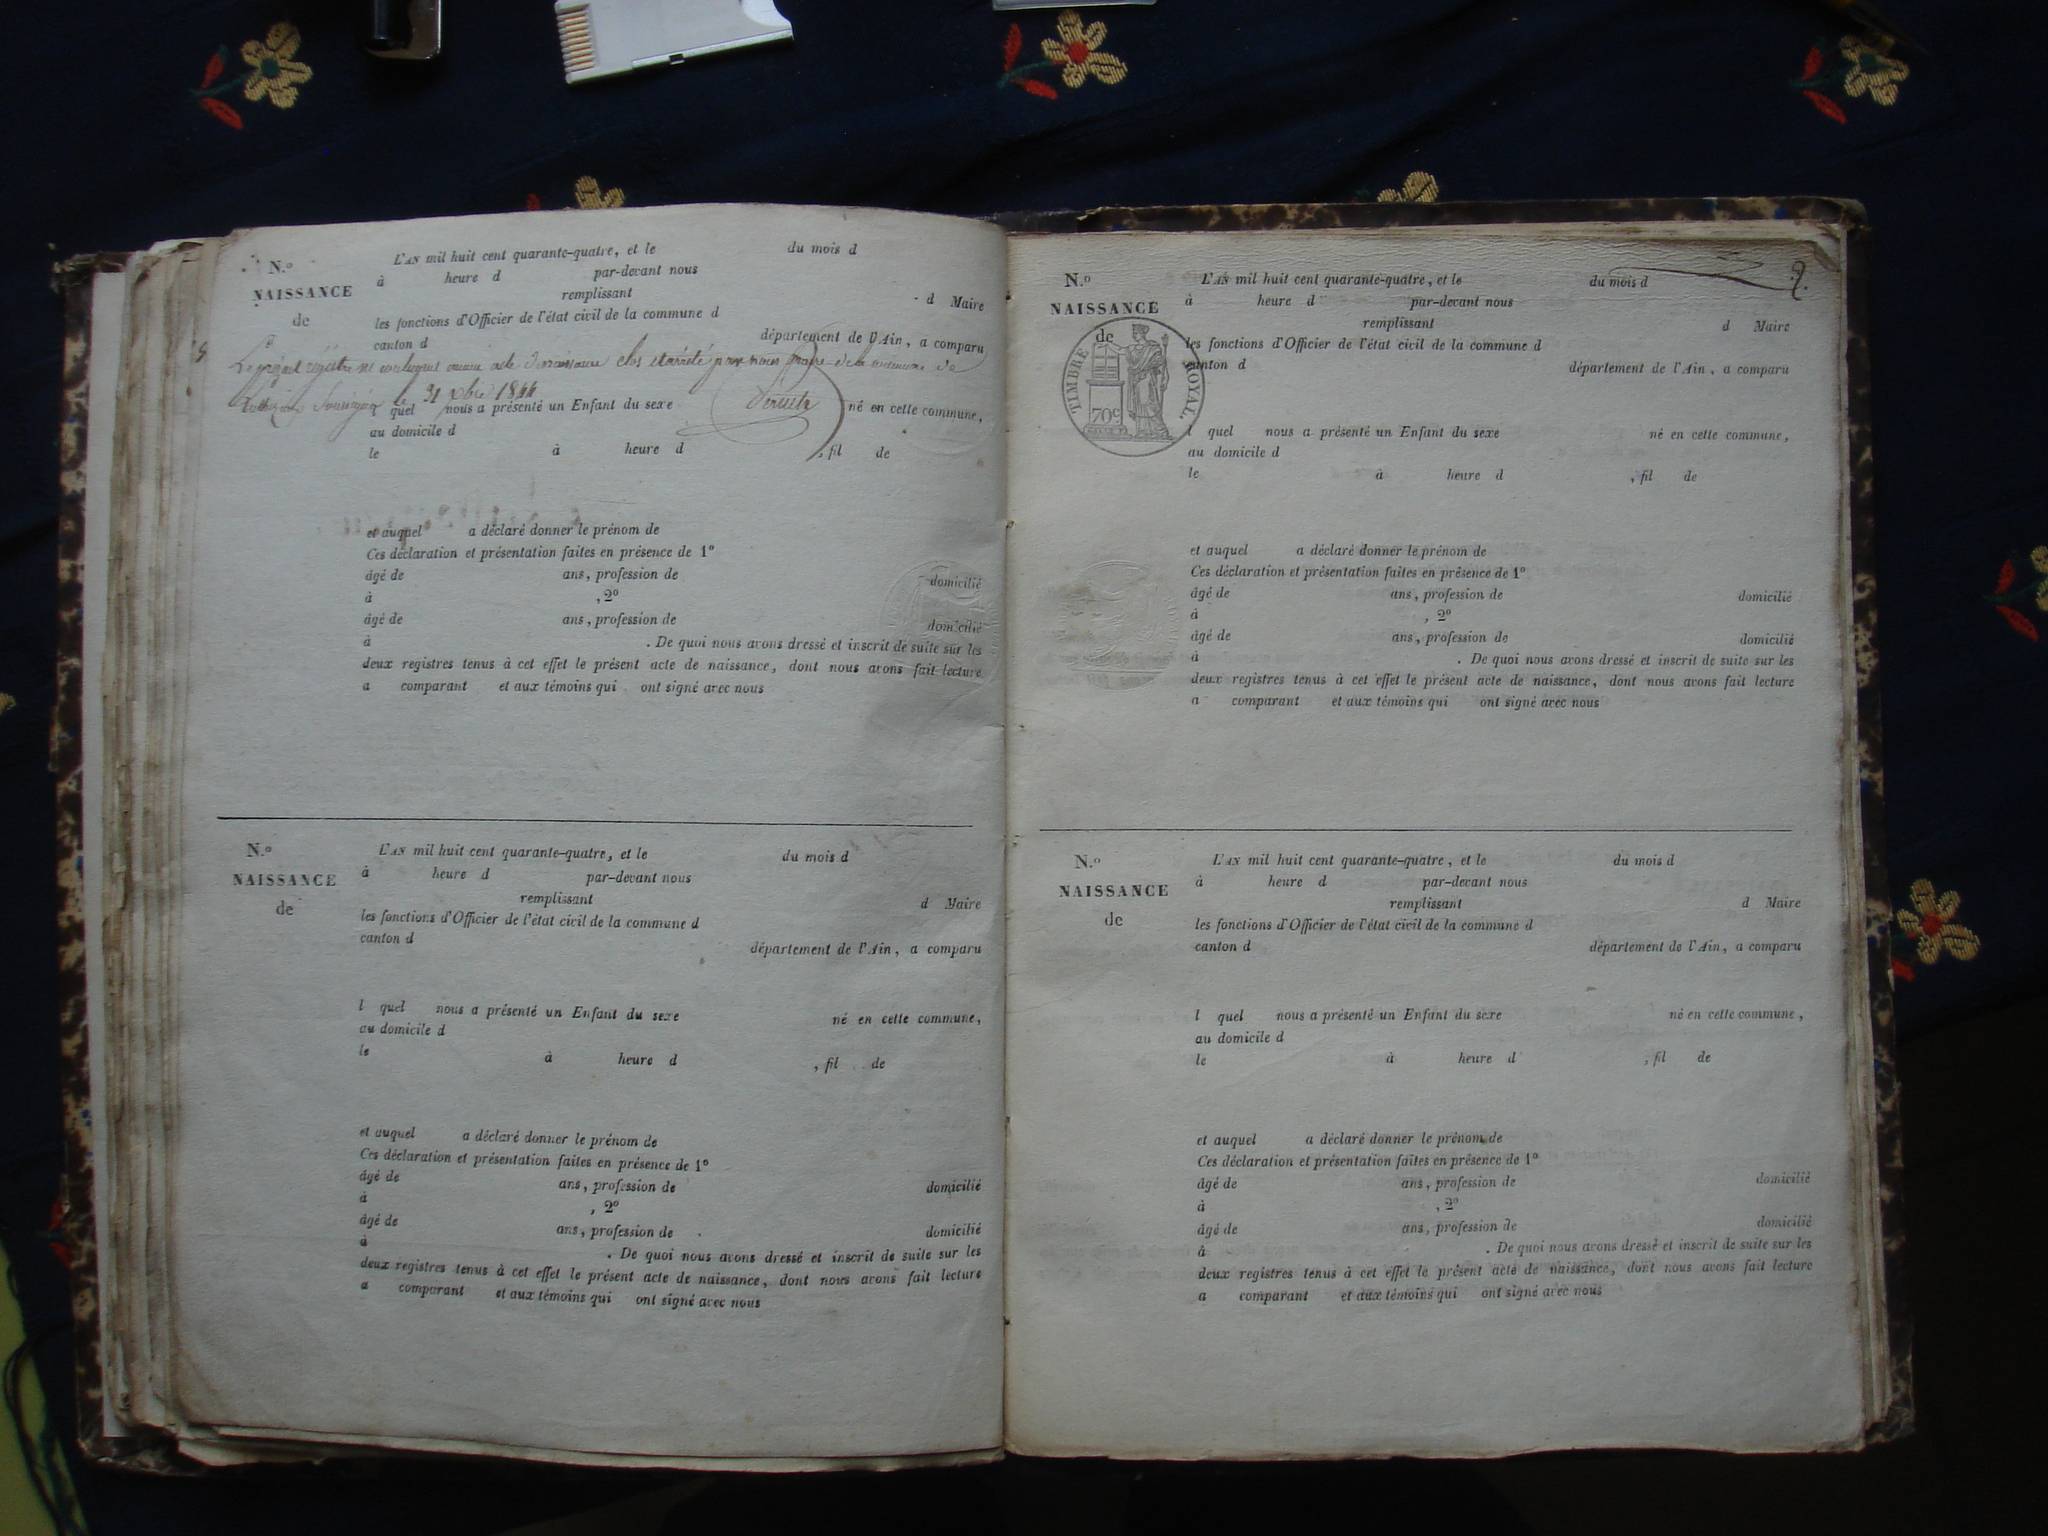 N.º
NAISSANCE
de
L'AN mil huit cent quarante-quatre, et le du mois d
à heure d par-devant nous
remplissant d Maire
les fonctions d'Officier de l'état civil de la commune d
canton d département de l'Ain, a comparu
Le présent régistre ne contenant aucun acte de naissance clos et arrêté par nous maire de la commune de
le 31 Xbre 1844
quel nous a présenté un Enfant du sexe né en cette commune,
au domicile d
le à heure d , fil de
et auquel a déclaré donner le prénom de
Ces déclaration et présentation faites en présence de 1º
âgé de ans, profession de domicilié
à , 2º
âgé de ans, profession de domicilié
à . De quoi nous avons dressé et inscrit de suite sur les
deux registres tenus à cet effet le présent acte de naissance, dont nous avons fait lecture
a comparant et aux témoins qui ont signé avec nous
N.º
NAISSANCE
de
L'AN mil huit cent quarante-quatre, et le du mois d
à heure d par-devant nous
remplissant d Maire
les fonctions d'Officier de l'état civil de la commune d
canton d département de l'Ain, a comparu
l quel nous a présenté un Enfant du sexe né en cette commune,
au domicile d
le à heure d , fil de
et auquel a déclaré donner le prénom de
Ces déclaration et présentation faites en présence de 1º
âgé de ans, profession de domicilié
à , 2º
âgé de ans, profession de domicilié
à . De quoi nous avons dressé et inscrit de suite sur les
deux registres tenus à cet effet le présent acte de naissance, dont nous avons fait lecture
a comparant et aux témoins qui ont signé avec nous
N.º
NAISSANCE
de
TIMBRE ROYAL
70c
L'AN mil huit cent quarante-quatre, et le du mois d
à heure d par-devant nous
remplissant d Maire
les fonctions d'Officier de l'état civil de la commune d
canton d département de l'Ain, a comparu
l quel nous a présenté un Enfant du sexe né en cette commune,
au domicile d
le à heure d , fil de
et auquel a déclaré donner le prénom de
Ces déclaration et présentation faites en présence de 1º
âgé de ans, profession de domicilié
à , 2º
âgé de ans, profession de domicilié
à . De quoi nous avons dressé et inscrit de suite sur les
deux registres tenus à cet effet le présent acte de naissance, dont nous avons fait lecture
a comparant et aux témoins qui ont signé avec nous
N.º
NAISSANCE
de
L'AN mil huit cent quarante-quatre, et le du mois d
à heure d par-devant nous
remplissant d Maire
les fonctions d'Officier de l'état civil de la commune d
canton d département de l'Ain, a comparu
l quel nous a présenté un Enfant du sexe né en cette commune,
au domicile d
le à heure d , fil de
et auquel a déclaré donner le prénom de
Ces déclaration et présentation faites en présence de 1º
âgé de ans, profession de domicilié
à , 2º
âgé de ans, profession de domicilié
à . De quoi nous avons dressé et inscrit de suite sur les
deux registres tenus à cet effet le présent acte de naissance, dont nous avons fait lecture
a comparant et aux témoins qui ont signé avec nous